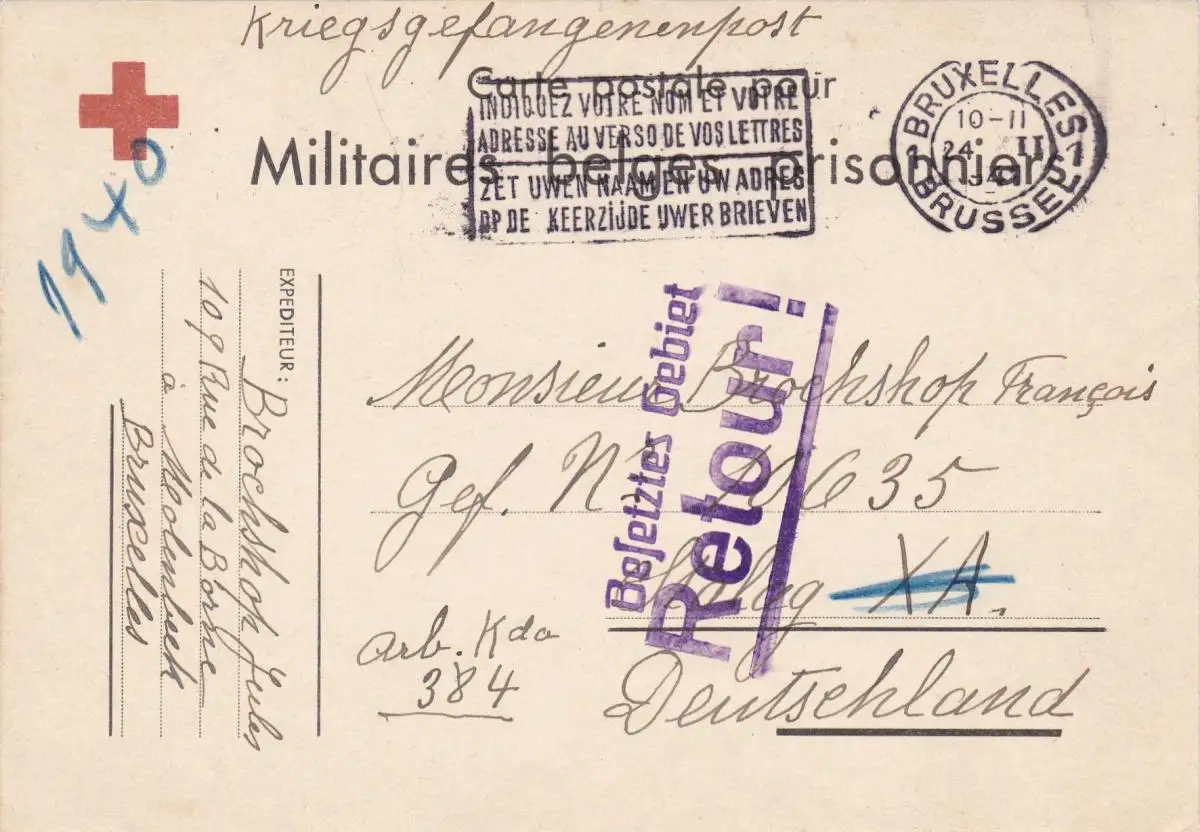 Kriegsgefangenenpost
Carte postale pour
Militaires belges prisonniers
INDIQUEZ VOTRE NOM ET VOTRE
ADRESSE AU VERSO DE VOS LETTRES
ZET UWEN NAAM EN UW ADRES
OP DE KEERZIJDE UWER BRIEVEN
BRUXELLES 1
10-11
24 II
1 BRUSSEL
1940
EXPEDITEUR:
Brochshop Jules
109 Rue de la Borne
à Molenbeek
Bruxelles
Beſetztes Gebiet
Retour!
Monsieur Brochshop François
Gef. N° 10635
Stalag XA.
Deutschland
Arb. Kdo
384